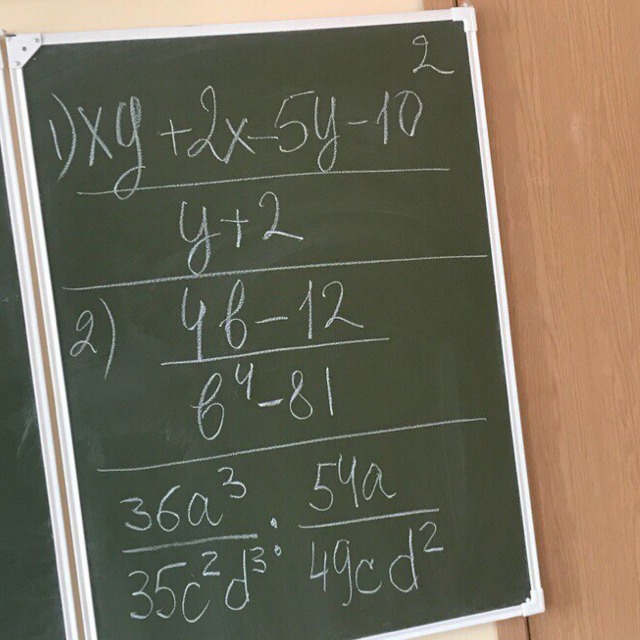 2
1) xy + 2x - 5y - 10
y + 2
2) 4b - 12
b⁴ - 81
36a³ : 54a
35c²d³ 49cd²